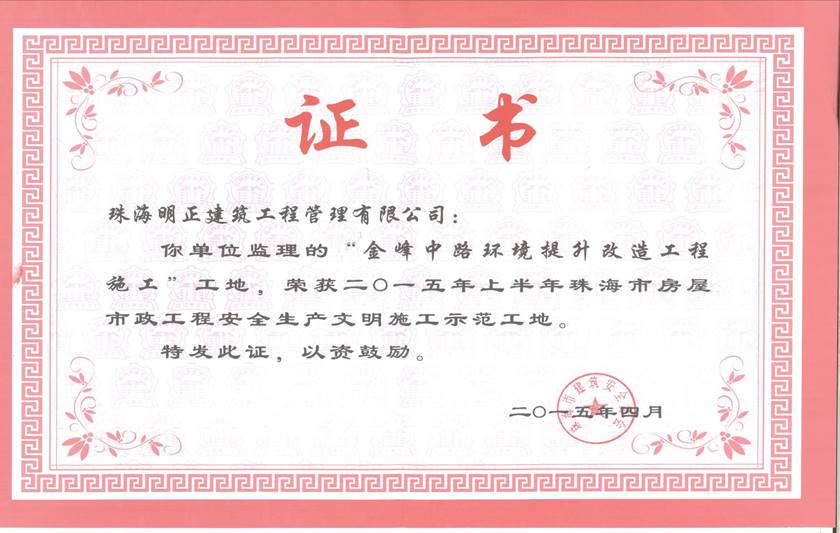 证 书
珠海明正建筑工程管理有限公司：
你单位监理的“金峰中路环境提升改造工程
施工”工地，荣获二〇一五年上半年珠海市房屋
市政工程安全生产文明施工示范工地。
特发此证，以资鼓励。
二〇一五年四月
珠海市建筑安全协会